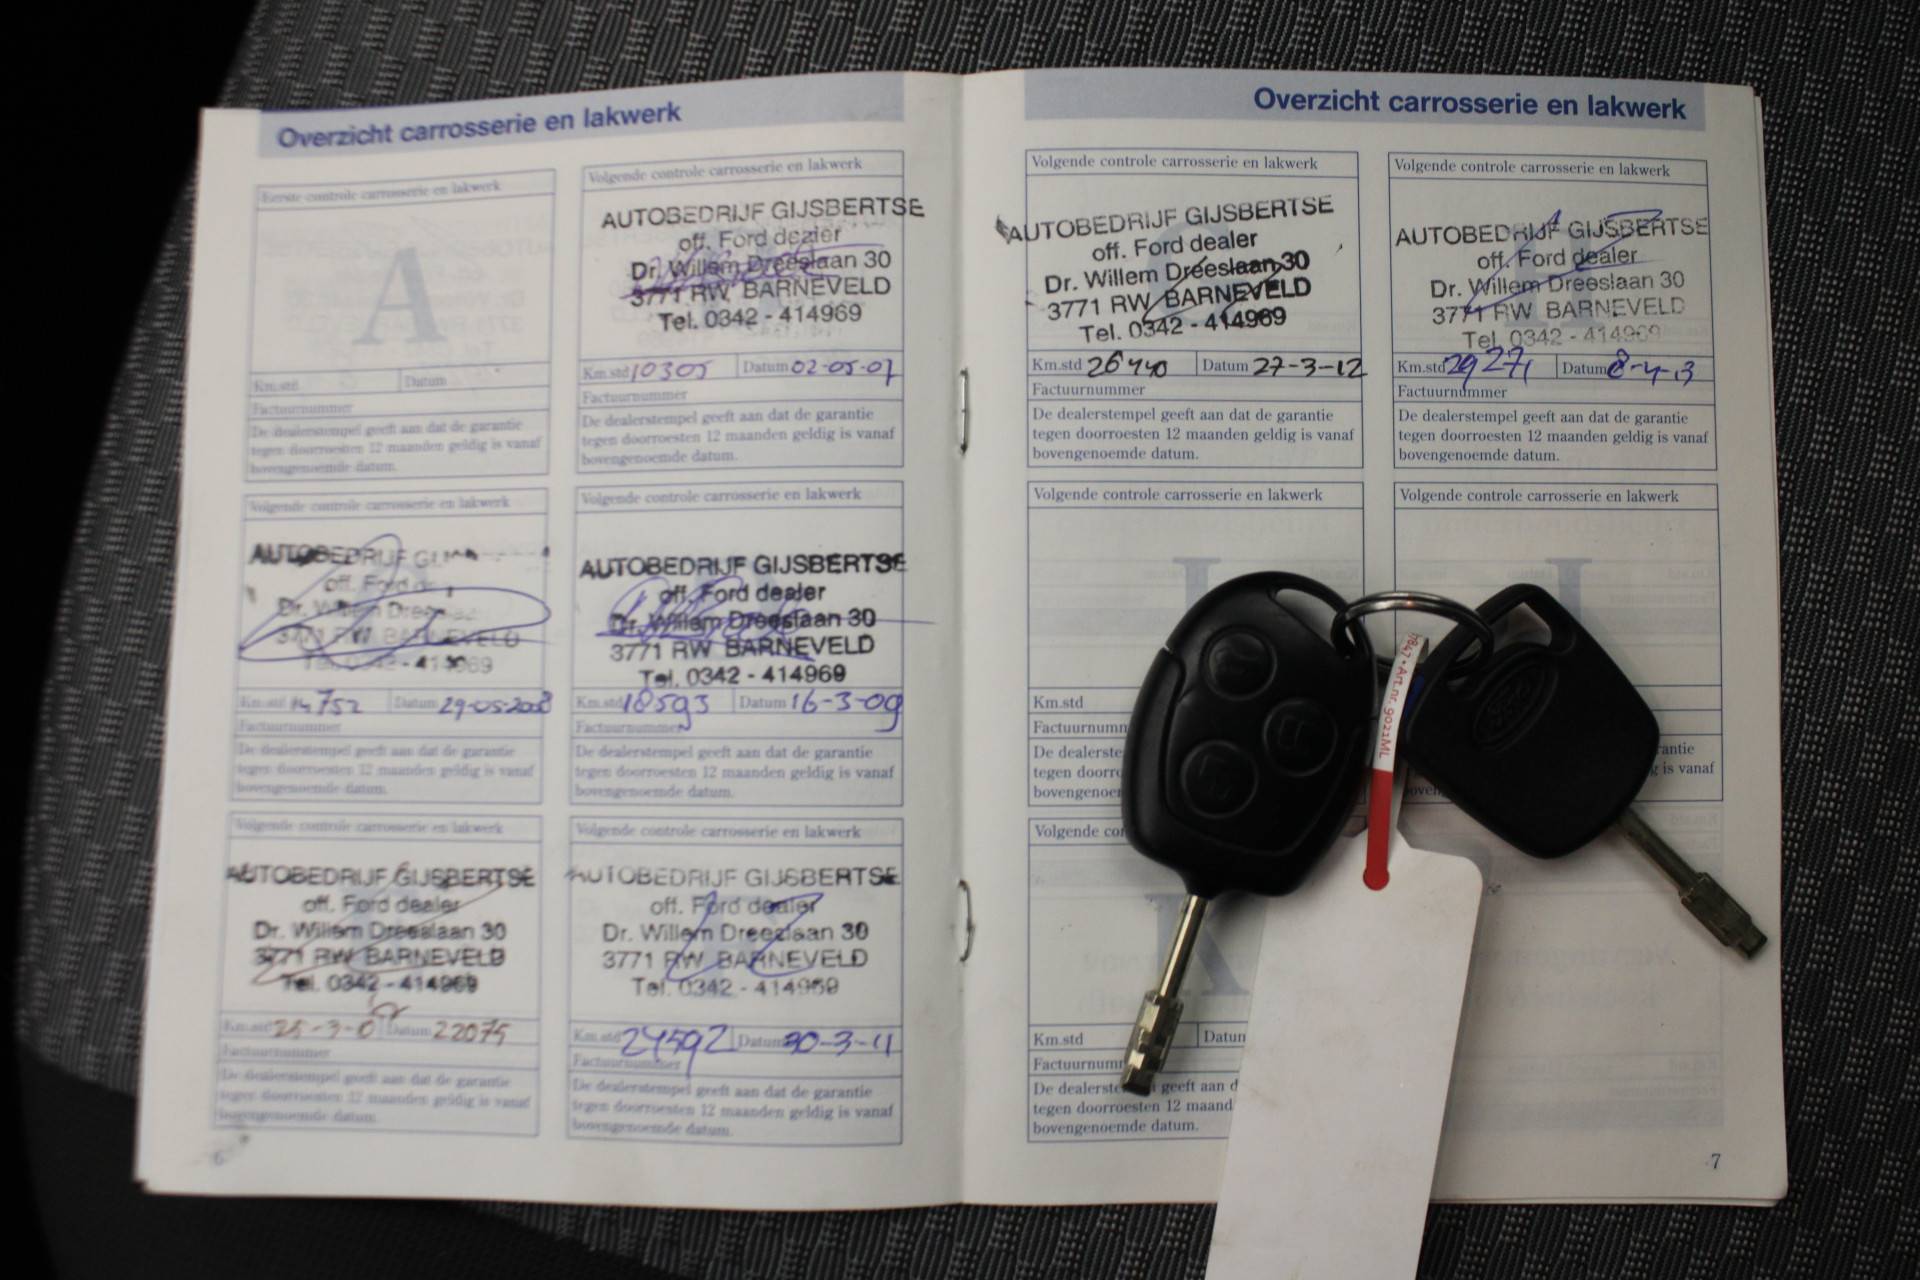 Overzicht carrosserie en lakwerk
Eerste controle carrosserie en lakwerk
A
Km.std Datum
Factuurnummer
De dealerstempel geeft aan dat de garantie
tegen doorroesten 12 maanden geldig is vanaf
bovengenoemde datum.
Volgende controle carrosserie en lakwerk
AUTOBEDRIJF GIJSBERTSE
off. Ford dealer
Dr. Willem Dreeslaan 30
3771 RW BARNEVELD
Tel. 0342 - 414969
Km.std 10305 Datum 02-05-07
Factuurnummer
De dealerstempel geeft aan dat de garantie
tegen doorroesten 12 maanden geldig is vanaf
bovengenoemde datum.
Volgende controle carrosserie en lakwerk
AUTOBEDRIJF
off. Ford
Dr. Willem
3771 RW BARNEVELD
Tel. 0342 - 414969
Km.std 14752 Datum 29-05-2008
Factuurnummer
De dealerstempel geeft aan dat de garantie
tegen doorroesten 12 maanden geldig is vanaf
bovengenoemde datum.
Volgende controle carrosserie en lakwerk
AUTOBEDRIJF GIJSBERTSE
off. Ford dealer
Dr. Willem Dreeslaan 30
3771 RW BARNEVELD
Tel. 0342 - 414969
Km.std 18593 Datum 16-3-09
Factuurnummer
De dealerstempel geeft aan dat de garantie
tegen doorroesten 12 maanden geldig is vanaf
bovengenoemde datum.
Volgende controle carrosserie en lakwerk
AUTOBEDRIJF GIJSBERTSE
off. Ford dealer
Dr. Willem Dreeslaan 30
3771 RW BARNEVELD
Tel. 0342 - 414969
Km.std Datum 22075
Factuurnummer
De dealerstempel geeft aan dat de garantie
tegen doorroesten 12 maanden geldig is vanaf
bovengenoemde datum.
Volgende controle carrosserie en lakwerk
AUTOBEDRIJF GIJSBERTSE
off. Ford dealer
Dr. Willem Dreeslaan 30
3771 RW BARNEVELD
Tel. 0342 - 414969
Km.std 24592 Datum 30-3-11
Factuurnummer
De dealerstempel geeft aan dat de garantie
tegen doorroesten 12 maanden geldig is vanaf
bovengenoemde datum.
6
Overzicht carrosserie en lakwerk
Volgende controle carrosserie en lakwerk
AUTOBEDRIJF GIJSBERTSE
off. Ford dealer
Dr. Willem Dreeslaan 30
3771 RW BARNEVELD
Tel. 0342 - 414969
Km.std 26440 Datum 27-3-12
Factuurnummer
De dealerstempel geeft aan dat de garantie
tegen doorroesten 12 maanden geldig is vanaf
bovengenoemde datum.
Volgende controle carrosserie en lakwerk
AUTOBEDRIJF GIJSBERTSE
off. Ford dealer
Dr. Willem Dreeslaan 30
3771 RW BARNEVELD
Tel. 0342 - 414969
Km.std 29271 Datum 8-4-13
Factuurnummer
De dealerstempel geeft aan dat de garantie
tegen doorroesten 12 maanden geldig is vanaf
bovengenoemde datum.
Volgende controle carrosserie en lakwerk
I
Km.std
Factuurnumm
De dealerste
tegen doorro
bovengenoer
Volgende controle carrosserie en lakwerk
rantie
g is vanaf
Volgende co
K
Km.std Datun
Factuurnumr
De dealerste geeft aan d
tegen doorroesten 12 maand
bovengenoemde datum.
7
Art.nr. 9021ML
Ford